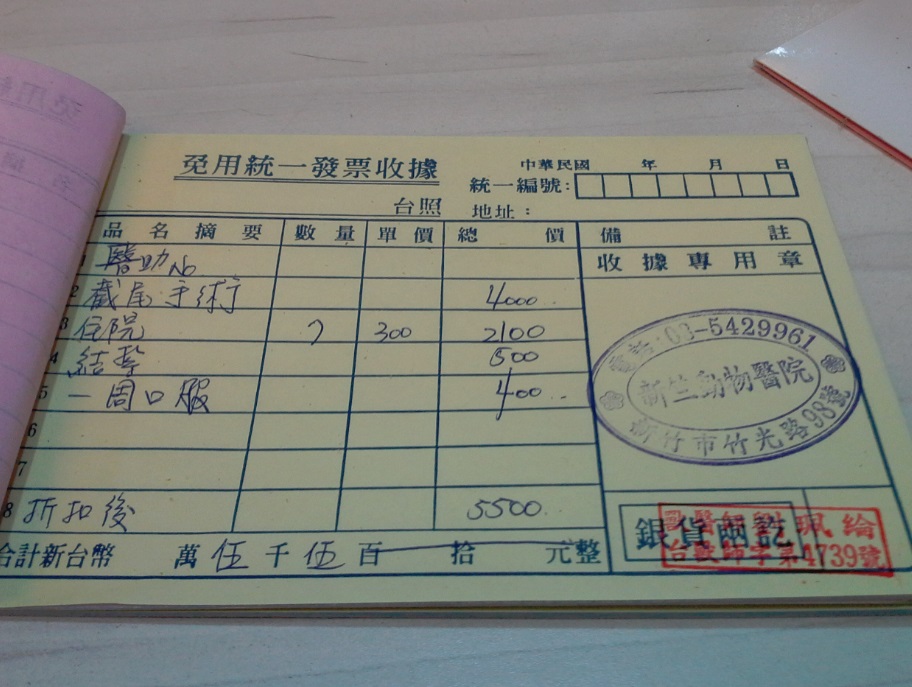 免用統一發票收據
中華民國 年 月 日
統一編號:
台照 地址:
品名摘要 數量 單價 總價 備註
收據專用章
醫助
2 截尾手術 4000
3 住院 7 300 2100
4 結紮 500
5 一周口服 400
6
7
8 折扣後 5500
合計新台幣 萬伍千伍百 拾 元整
電話:03-5429961
新竺動物醫院
新竹市竹光路98號
銀貨兩訖
獸醫師 珮綸
台獸師字第4739號